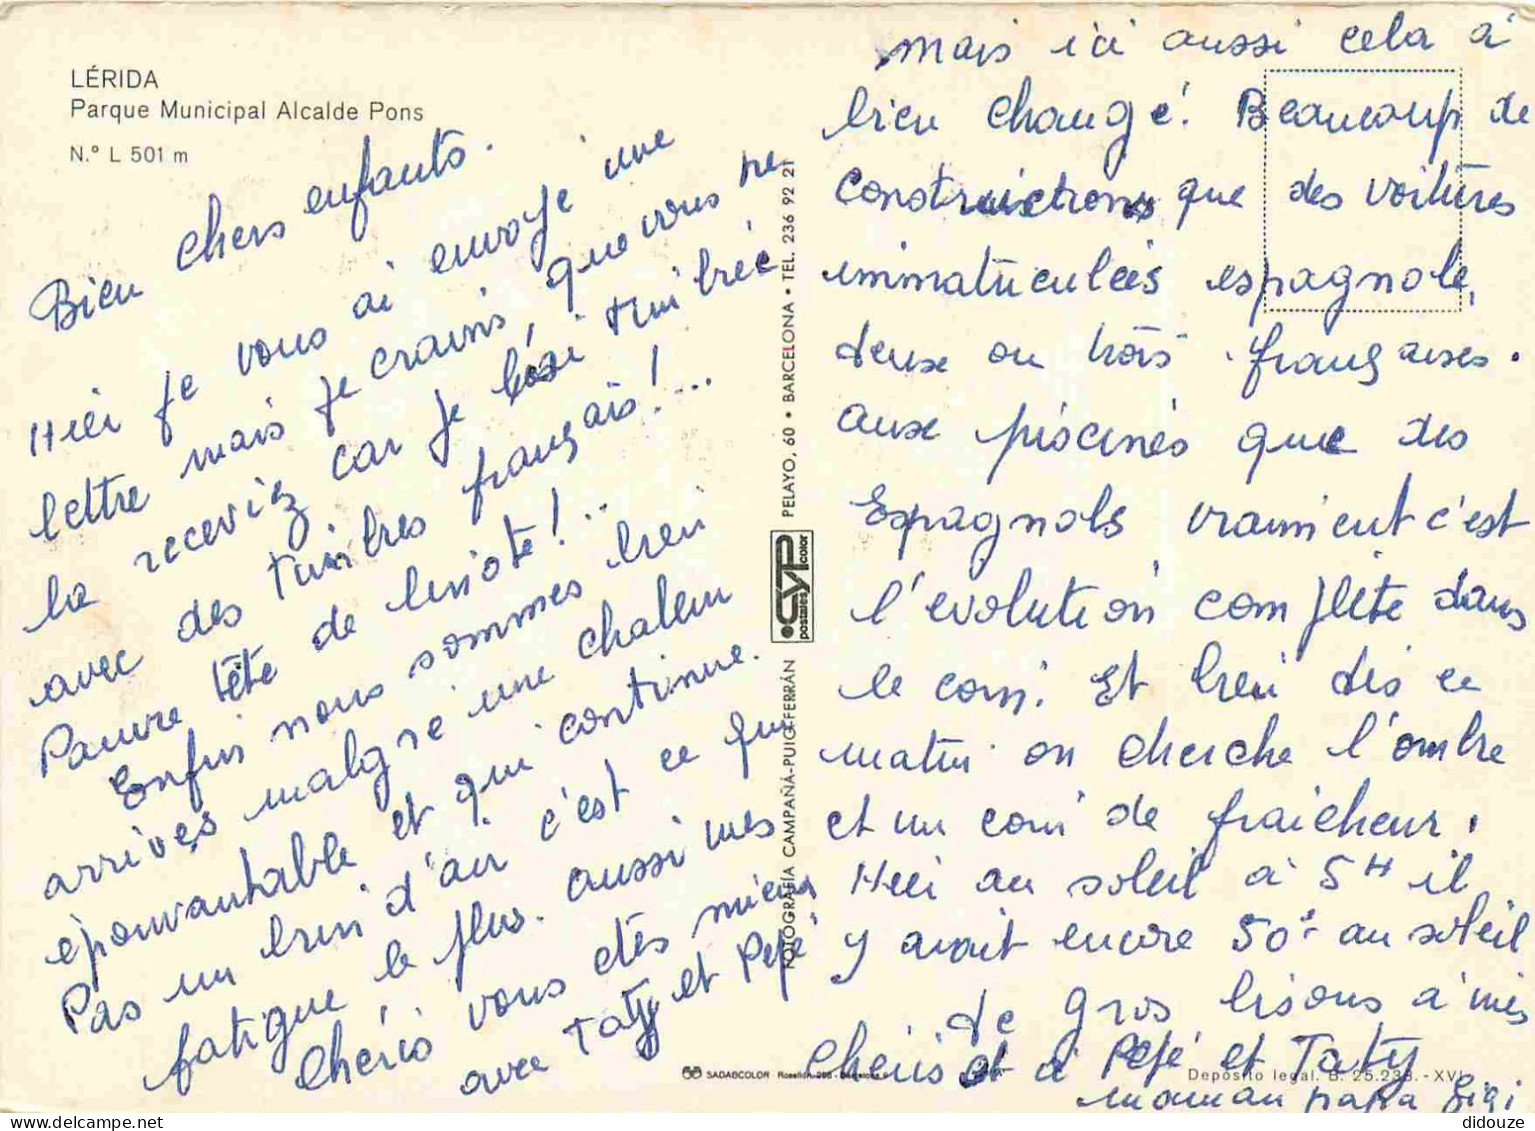 LÉRIDA
Parque Municipal Alcalde Pons
N.° L 501 m
Bien chers enfants.
Hier je vous ai envoyé une
lettre mais je crains, que vous ne
la receviez car je l'ai timbrée
avec des timbres français!...
Pauvre tête de linote!...
Enfin nous sommes bien
arrivés malgré une chaleur
épouvantable et qui continue.
Pas un brin d'air c'est ce qui
fatigue le plus. aussi mes
chéris vous êtes mieux
avec Taty et Pépé
FOTOGRAFÍA CAMPAÑÁ-PUIG FERRÁN
postales CYP color
PELAYO, 60 • BARCELONA • TEL. 236 92 21
mais ici aussi cela à
bien changé! Beaucoup de
constructions que des voitures
immatriculées espagnole,
deux ou trois françaises.
aux piscines que des
Espagnols vraiment c'est
l'évolution complète dans
le coin. Et bien dès ce
matin on cherche l'ombre
et un coin de fraicheur.
Hier au soleil à 5H il
y avait encore 50° au soleil
de gros bisous à mes
chéris et à Pépé et Taty
maman papa Gigi
SADAGCOLOR Rosellón, 298 - Barcelona
Depósito legal. B. 25.238.-XVI
didouze